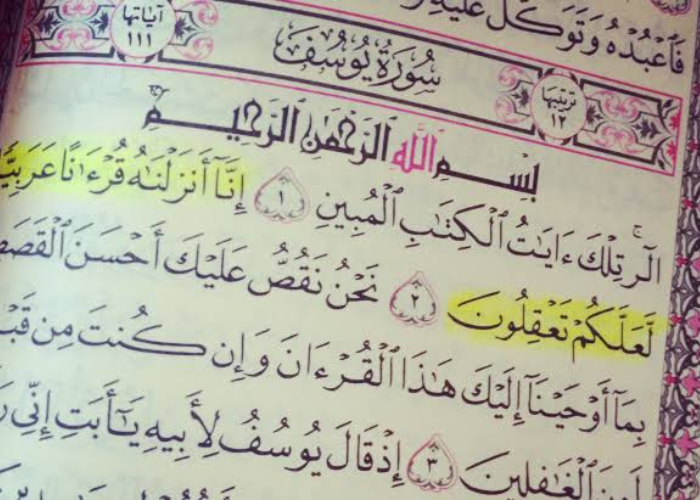 فَٱعْبُدْهُ وَتَوَكَّلْ عَلَيْهِ
ءَايَاتُهَا ١١١
سُورَةُ يُوسُفَ
تَرْتِيبُهَا ١٢
بِسْمِ ٱللَّهِ ٱلرَّحْمَٰنِ ٱلرَّحِيمِ
الٓر تِلْكَ ءَايَٰتُ ٱلْكِتَٰبِ ٱلْمُبِينِ ١ إِنَّآ أَنزَلْنَٰهُ قُرْءَٰنًا عَرَبِيًّا
لَّعَلَّكُمْ تَعْقِلُونَ ٢ نَحْنُ نَقُصُّ عَلَيْكَ أَحْسَنَ ٱلْقَصَصِ
بِمَآ أَوْحَيْنَآ إِلَيْكَ هَٰذَا ٱلْقُرْءَانَ وَإِن كُنتَ مِن قَبْ
لَمِنَ ٱلْغَٰفِلِينَ ٣ إِذْ قَالَ يُوسُفُ لِأَبِيهِ يَٰٓأَبَتِ إِنِّى